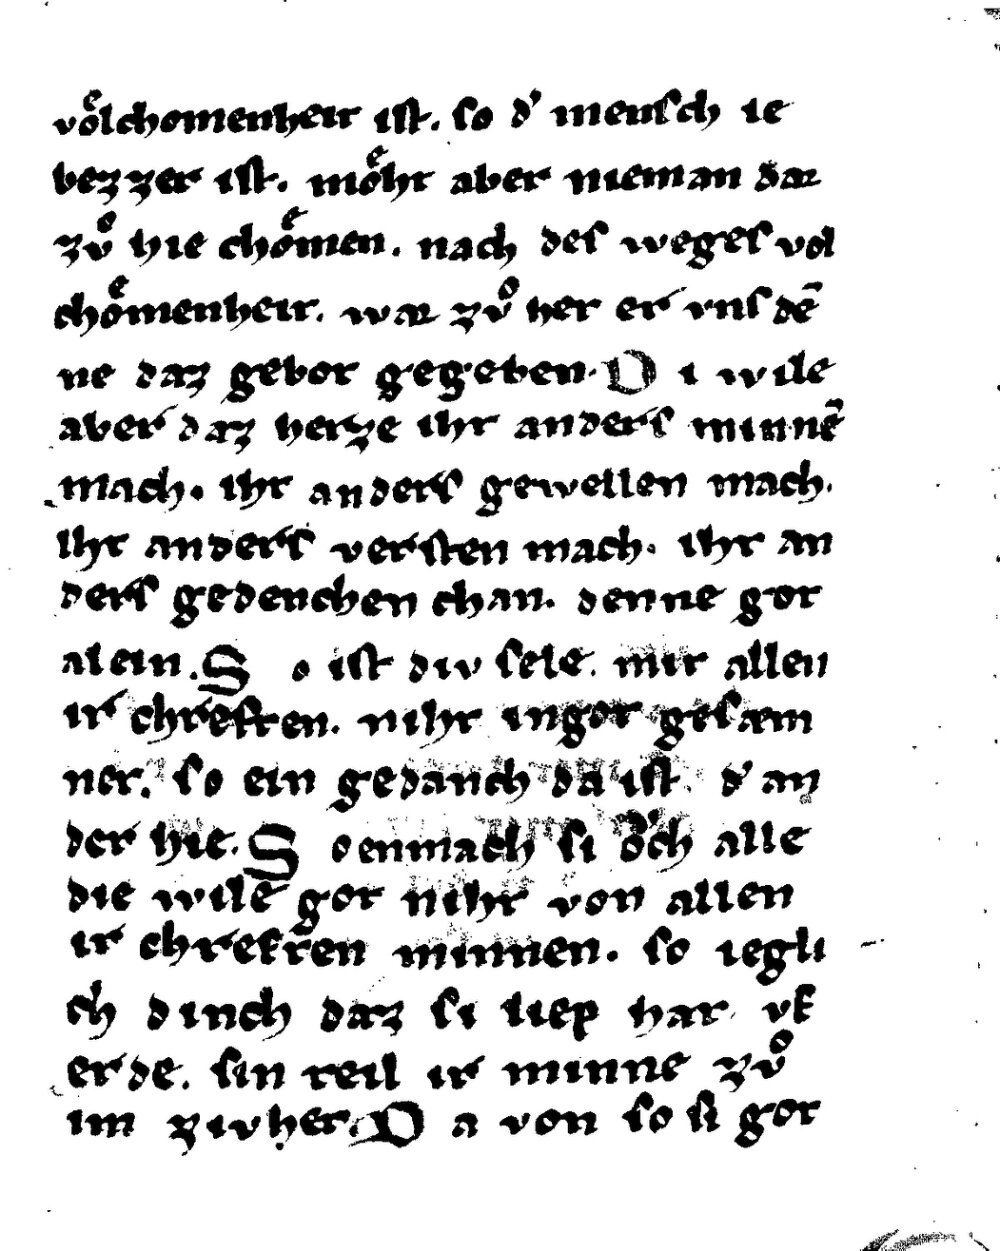 voͤlchomenheit ist. so d' mensch ie
bezzer ist. moͤht aber nieman dar
zvͦ hie choͤmen. nach des weges vol
choͤmenheit. war zvͦ het er vns dē
ne daz gebot gegeben. Di wile
aber daz herze iht anders minnē
mach. iht anders gewellen mach.
Iht anders versten mach. iht an
ders gedenchen chan. denne got
alein. So ist div sele. mit allen
ir chreften. niht in got gesam
net. so ein gedanch da ist d' an
der hie. So enmach si oͮch alle
die wile got niht von allen
ir chreften minnen. so iegli
ch dinch daz si liep hat vf
erde. sin teil ir minne zvͦ
im zivhet. Da von so si got